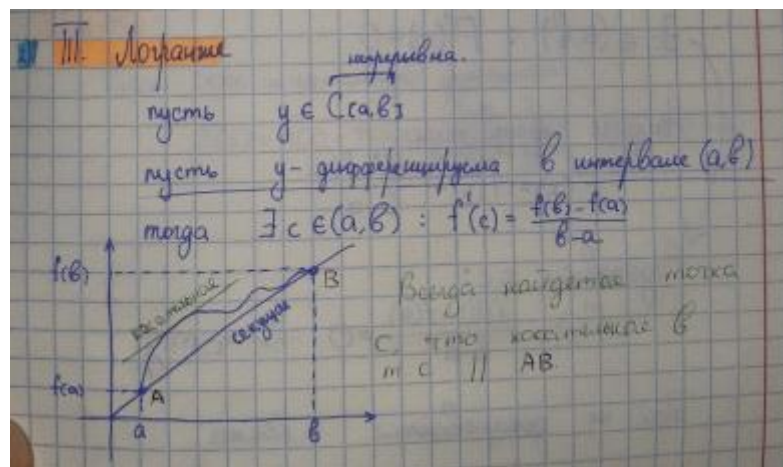 III. Лагранже
непрерывна.
пусть y ∈ C[a,b]
пусть y - дифференцируема в интервале (a,b)
тогда ∃ c ∈ (a,b) : f'(c) = f(b) - f(a) / b - a
f(b)
касательная
B
секущая
Всегда найдется точка
C, что касательная в
т C || AB
f(a)
A
a
b